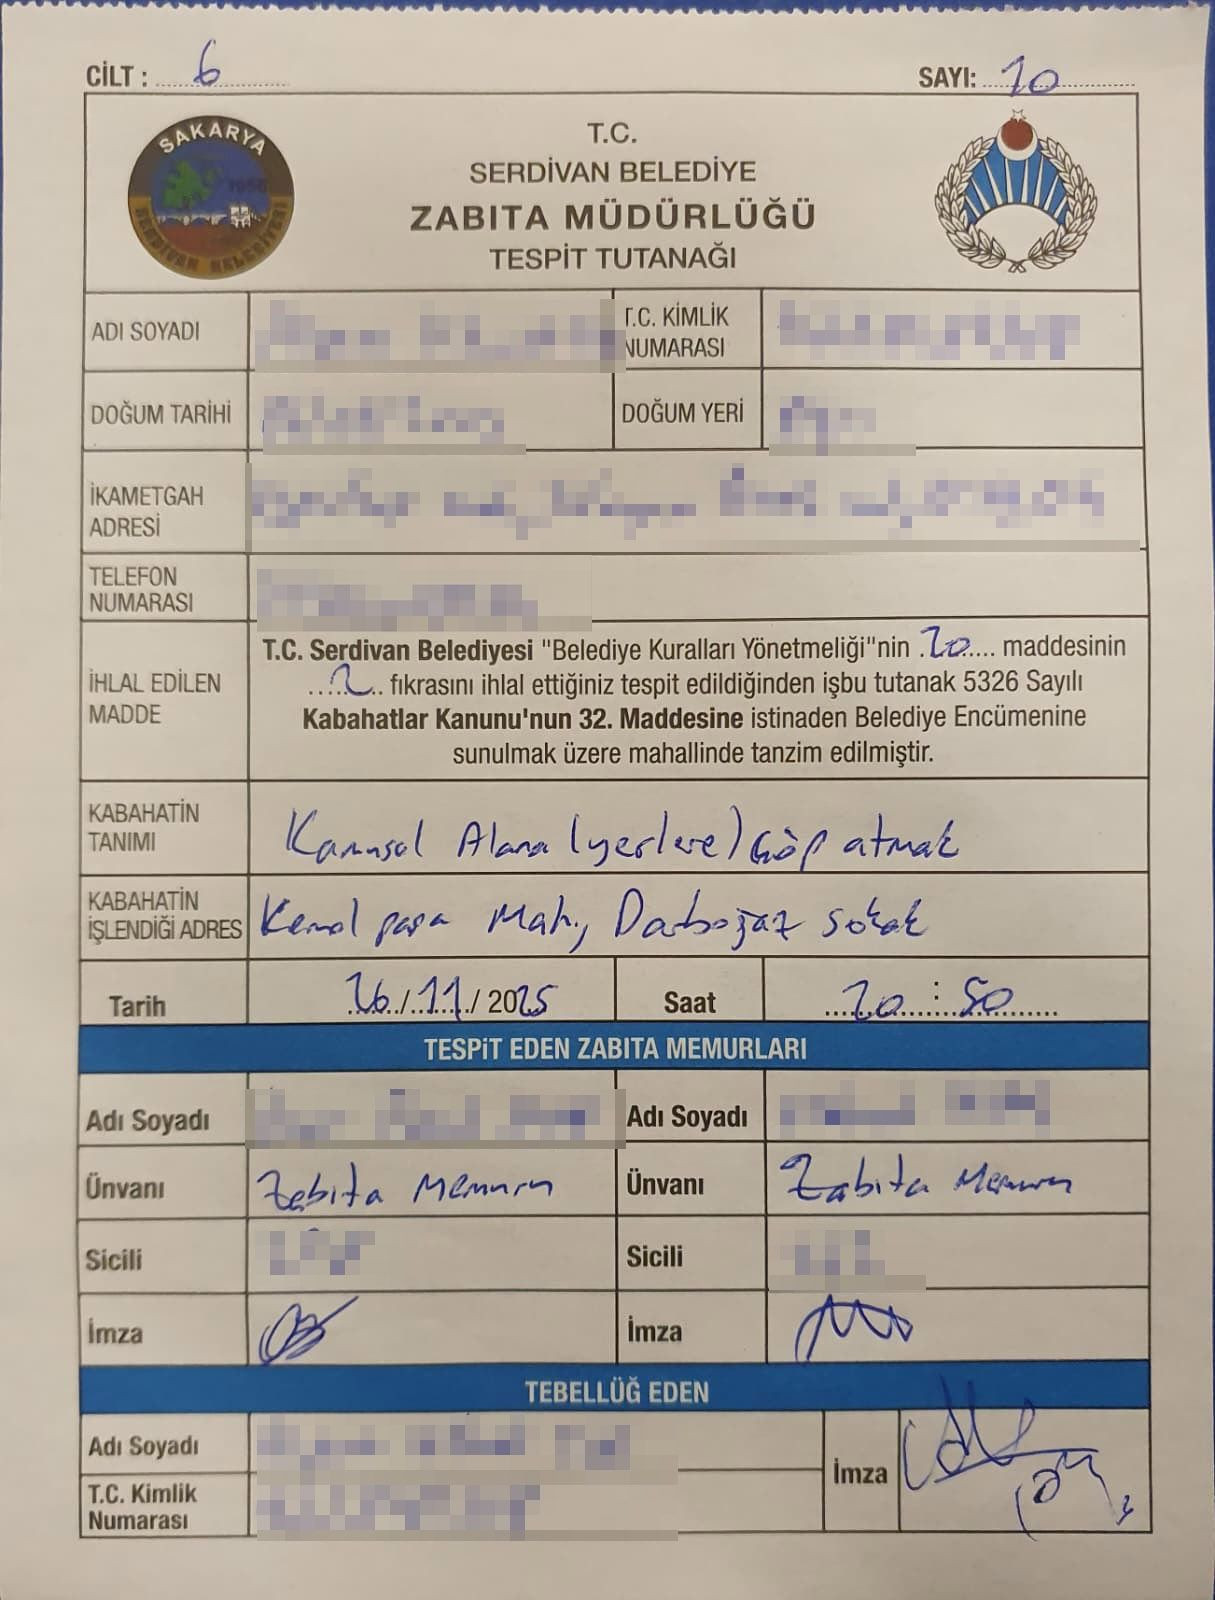 CİLT : 6
SAYI: 10
SAKARYA
1956
SERDİVAN BELEDİYESİ
T.C.
SERDİVAN BELEDİYE
ZABITA MÜDÜRLÜĞÜ
TESPİT TUTANAĞI
ADI SOYADI
T.C. KİMLİK
NUMARASI
DOĞUM TARİHİ
DOĞUM YERİ
İKAMETGAH
ADRESİ
TELEFON
NUMARASI
İHLAL EDİLEN
MADDE
T.C. Serdivan Belediyesi "Belediye Kuralları Yönetmeliği"nin .20..... maddesinin
....2.. fıkrasını ihlal ettiğiniz tespit edildiğinden işbu tutanak 5326 Sayılı
Kabahatlar Kanunu'nun 32. Maddesine istinaden Belediye Encümenine
sunulmak üzere mahallinde tanzim edilmiştir.
KABAHATİN
TANIMI
Kamusal Alana (yerlere) Çöp atmak
KABAHATİN
İŞLENDİĞİ ADRES
Kemal paşa Mah., Darboğaz sokak
Tarih
26/11/2025
Saat
20:50
TESPİT EDEN ZABITA MEMURLARI
Adı Soyadı
Adı Soyadı
Ünvanı
Zabıta Memuru
Ünvanı
Zabıta Memuru
Sicili
Sicili
İmza
İmza
TEBELLÜĞ EDEN
Adı Soyadı
T.C. Kimlik
Numarası
İmza